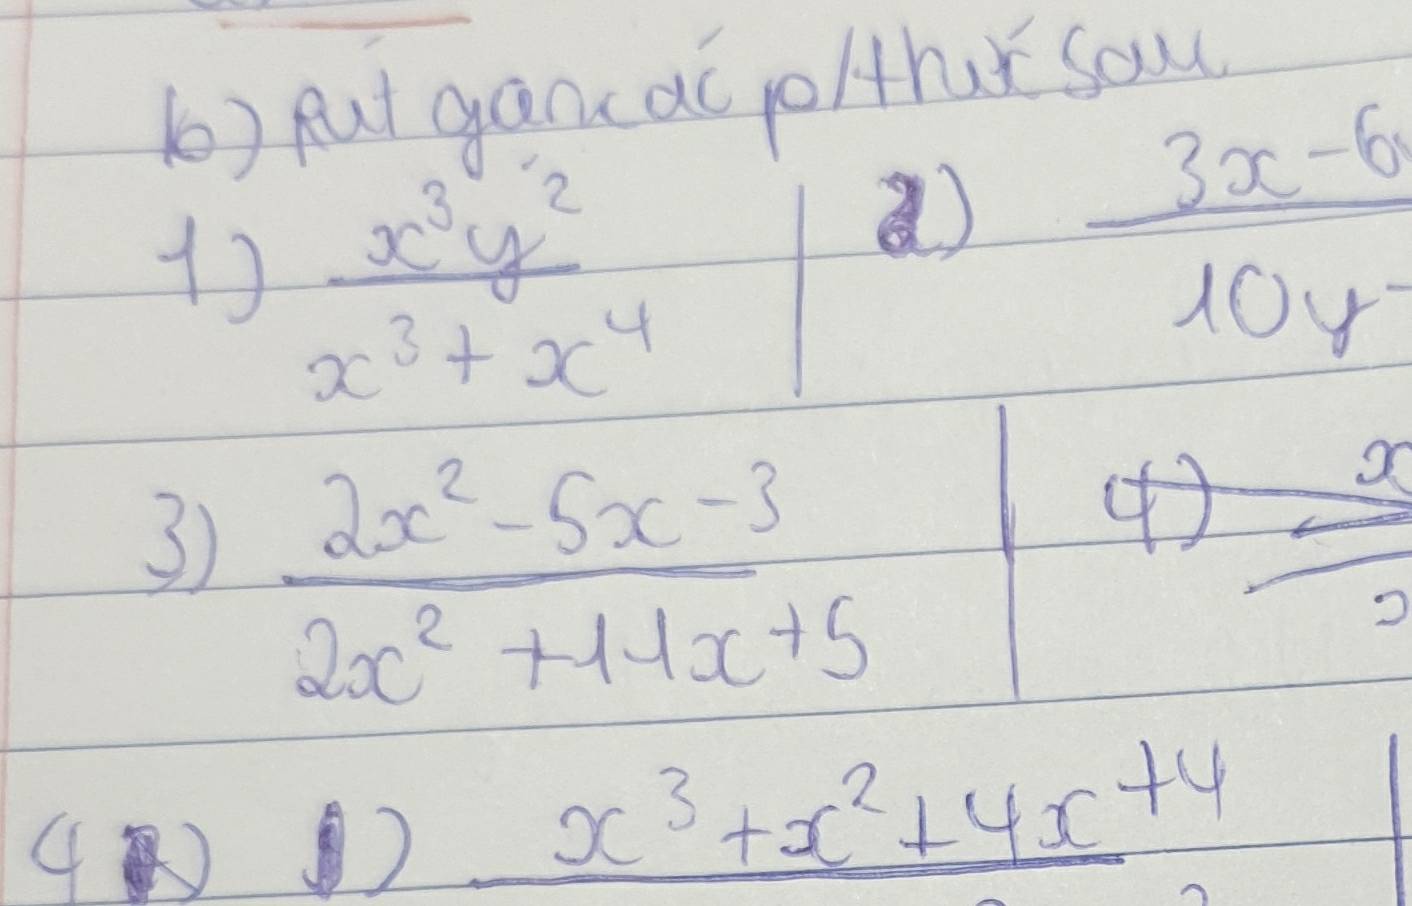 b) Rút gọn các p/thức sau
1) x³y² / x³ + x⁴ | 2) 3x - 6 / 10y -
3) 2x² - 5x - 3 / 2x² + 11x + 5 | 4) x
4) 1) x³ + x² + 4x + 4